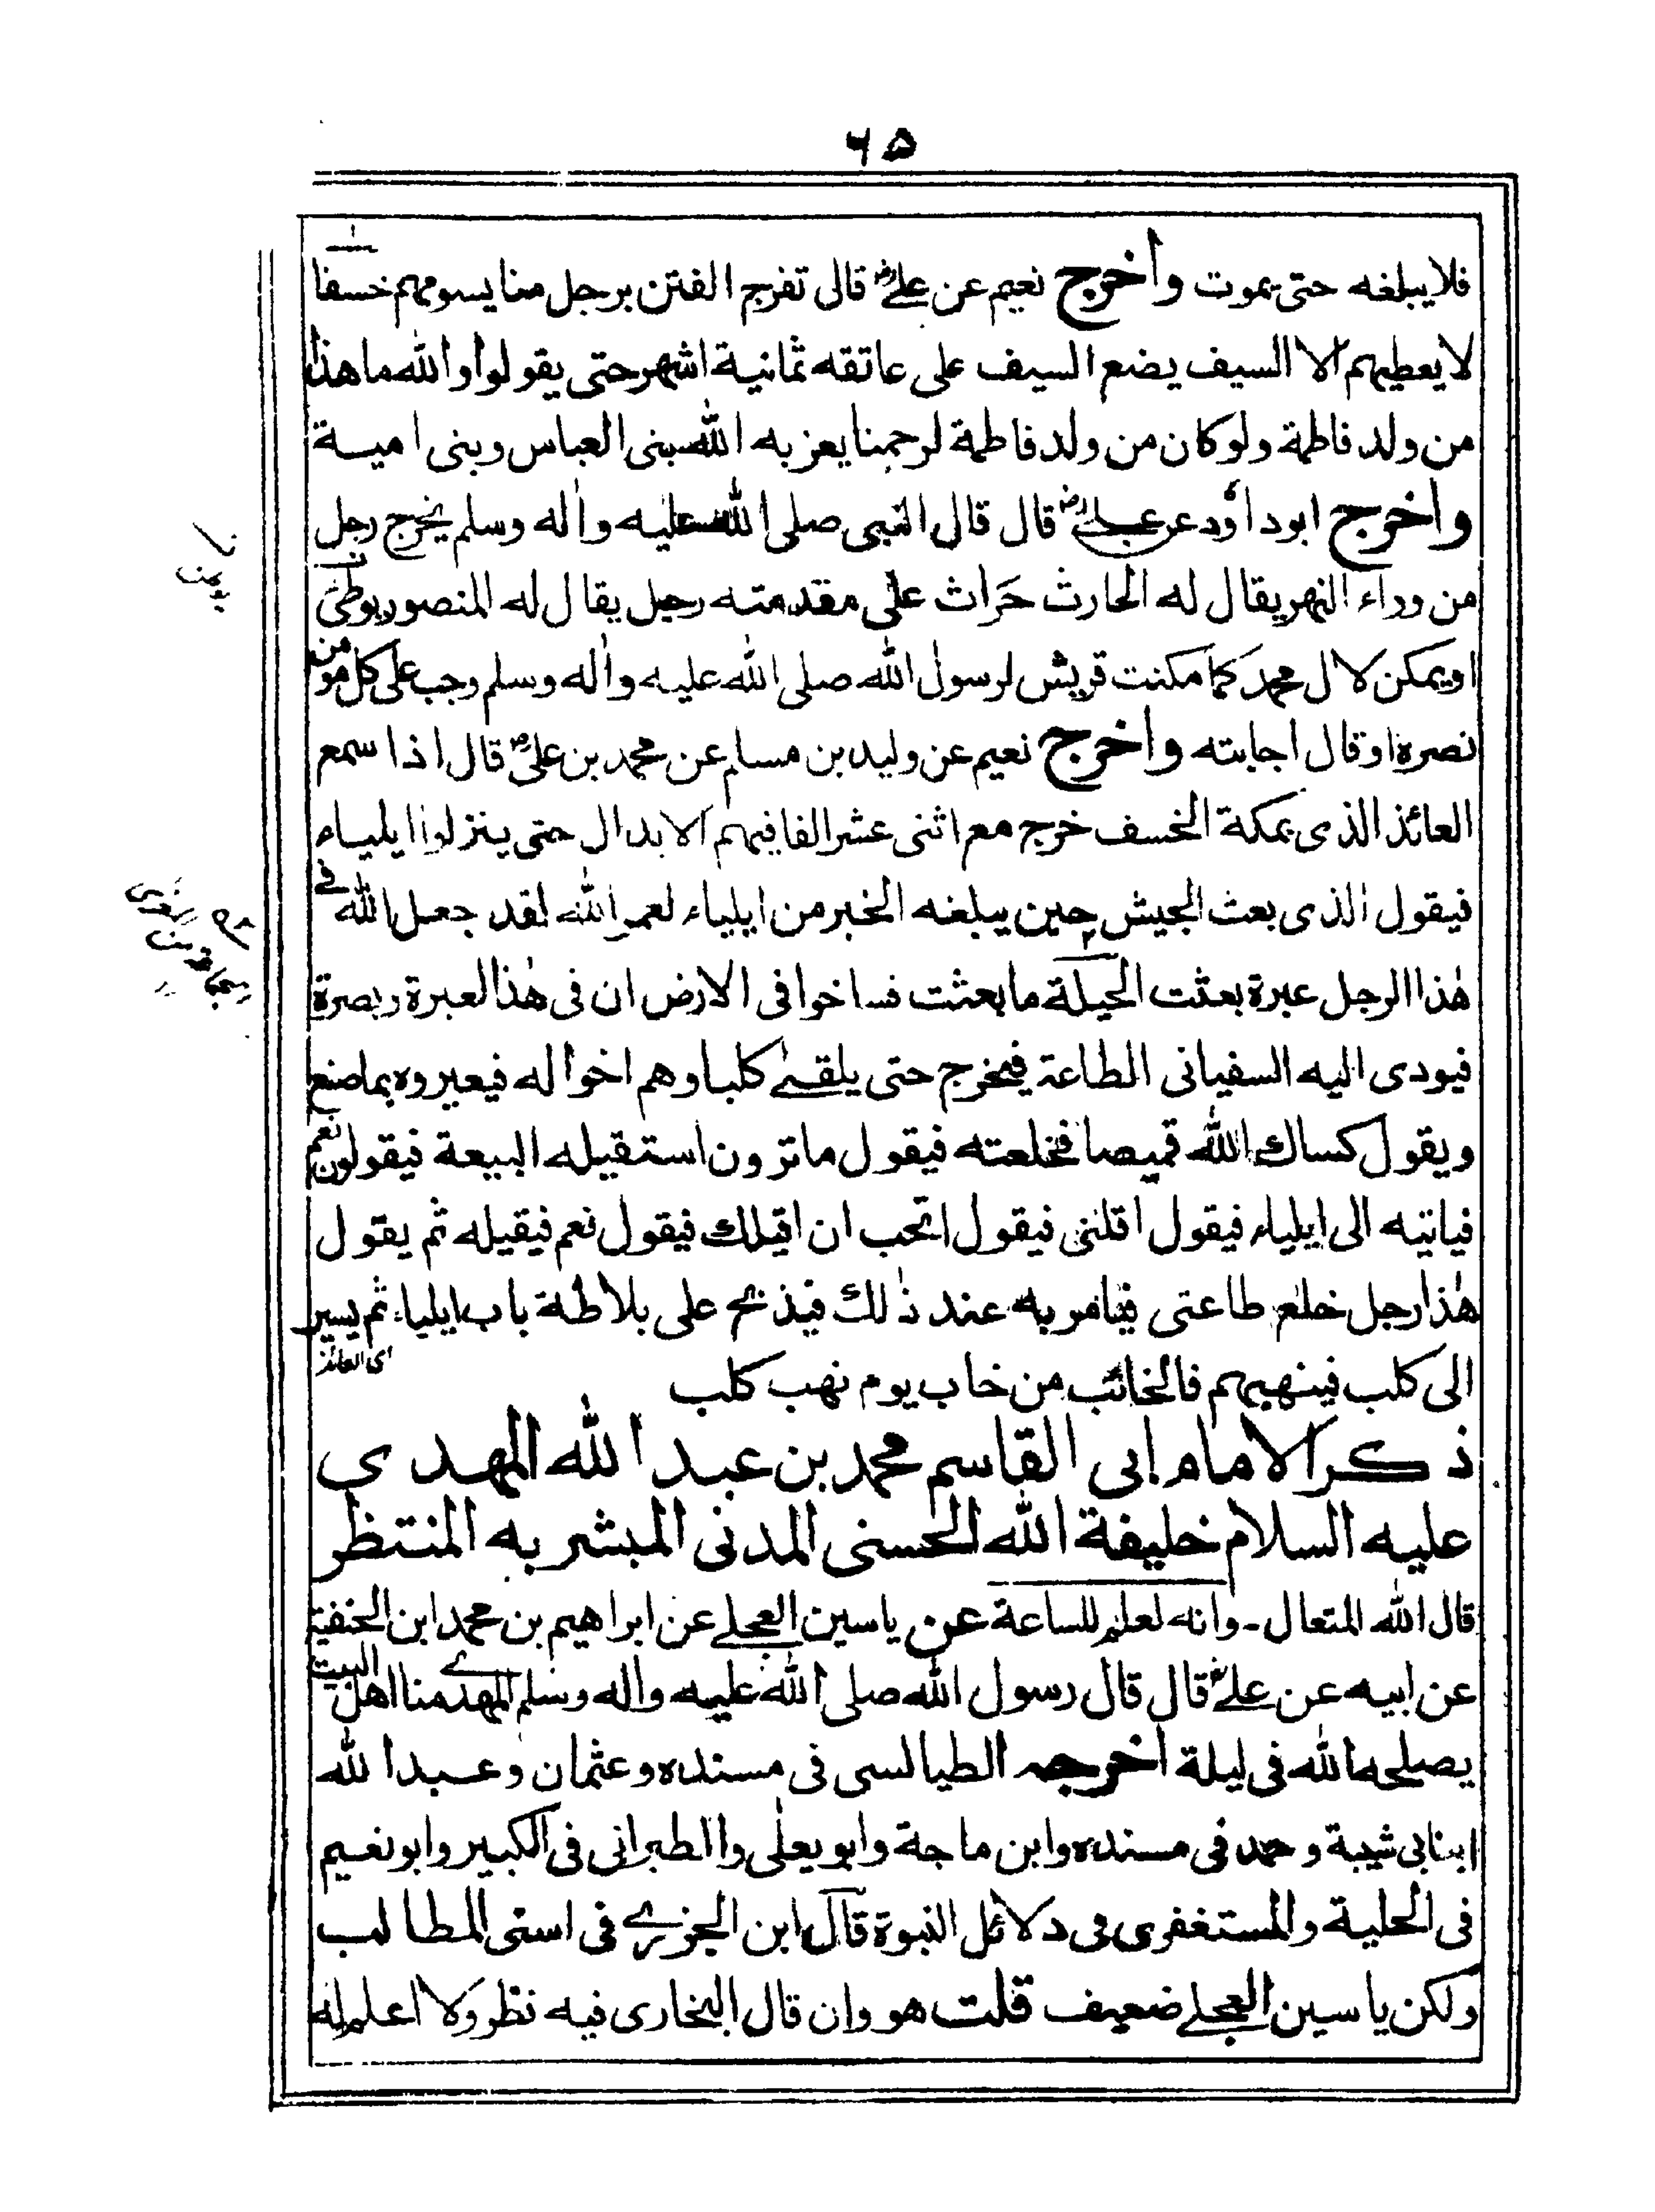 ۶۵
فلا يبلغه حتى يموت واخرج نعيم عن علىؓ قال تفرج الفتن برجل منا يسومهم خسفا
لا يعطيهم الا السيف يضع السيف على عاتقه ثمانية اشهر حتى يقولوا والله ما هذا
من ولد فاطمة ولو كان من ولد فاطمة لرحمنا يعزبه الله ببنى العباس وبنى امية
واخرج ابو داؤد عن علىؓ قال قال النبى صلى الله عليه واٰله وسلم يخرج رجل
من وراء النهر يقال له الحارث حَراث على مقدمته رجل يقال له المنصور يوطئ
او يمكن لال محمد كما مكنت قريش لرسول الله صلى الله عليه واٰله وسلم وجب على كل مومن
نصرة او قال اجابته واخرج نعيم عن وليد بن مسلم عن محمد بن علىؓ قال اذا سمع
العائذ الذى بمكة الخسف خرج مع اثنى عشر الفا فيهم الابدال حتى ينزلوا ايلياء
فيقول الذى بعث الجيش حين يبلغه الخبر من ايلياء لعمر الله لقد جعل الله فى
هٰذا الرجل عبرة بعثت اليه ما بعثت فساخوا فى الارض ان فى هٰذا لعبرة وبصرة
فيودى اليه السفيانى الطاعة فيخرج حتى يلقى كلبا وهم اخواله فيعيروه بما صنع
ويقول كساك الله قميصا فخلعته فيقول ما ترون استقيله البيعة فيقولون نعم
فياتيه الى ايلياء فيقول اقلنى فيقول اتحب ان اقيلك فيقول نعم فيقيله ثم يقول
هٰذا رجل خلع طاعتى فيامر به عند ذٰلك فيذبح على بلاطة باب ايلياء ثم يسير
اى العائذ
الى كلب فينهبهم فالخائب من خاب يوم نهب كلب
ذكر الامام ابى القاسم محمد بن عبد الله المهدى
عليه السلام خليفة الله الحسنى المدنى المبشر به المنتظر
قال الله المتعال۔ وانه لعلم للساعة عن ياسين العجلى عن ابراهيم بن محمد ابن الحنفية
عن ابيه عن علىؓ قال قال رسول الله صلى الله عليه واله وسلم المهدى منا اهل البيت
يصلحه الله فى ليلة اخرجه الطيالسى فى مسنده وعثمان وعبد الله
ابنا بى شيبة وحمد فى مسنده وابن ماجة وابو يعلٰى والطبرانى فى الكبير وابو نعيم
فى الحلية والمستغفرى فى دلائل النبوة قال ابن الجزرى فى اسنى المطالب
ولكن ياسين العجلى ضعيف قلت هو وان قال البخارى فيه نظر ولا اعلم له